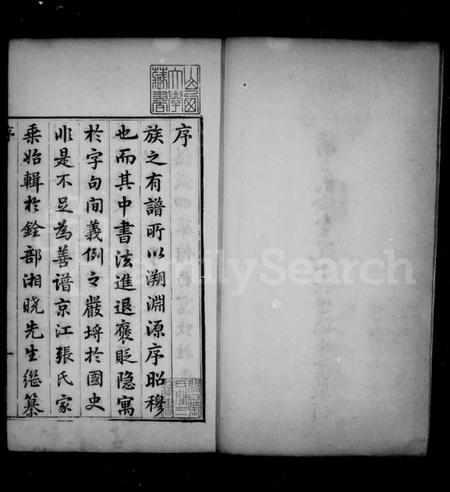 序
族之有譜所以溯淵源序昭穆
也而其中書法進退褒貶隐寓
於字句間義例之嚴埒於國史
非是不足為善譜京江張氏家
乗始輯於銓部湘曉先生継纂
序
山西大學藏書
FamilySearch